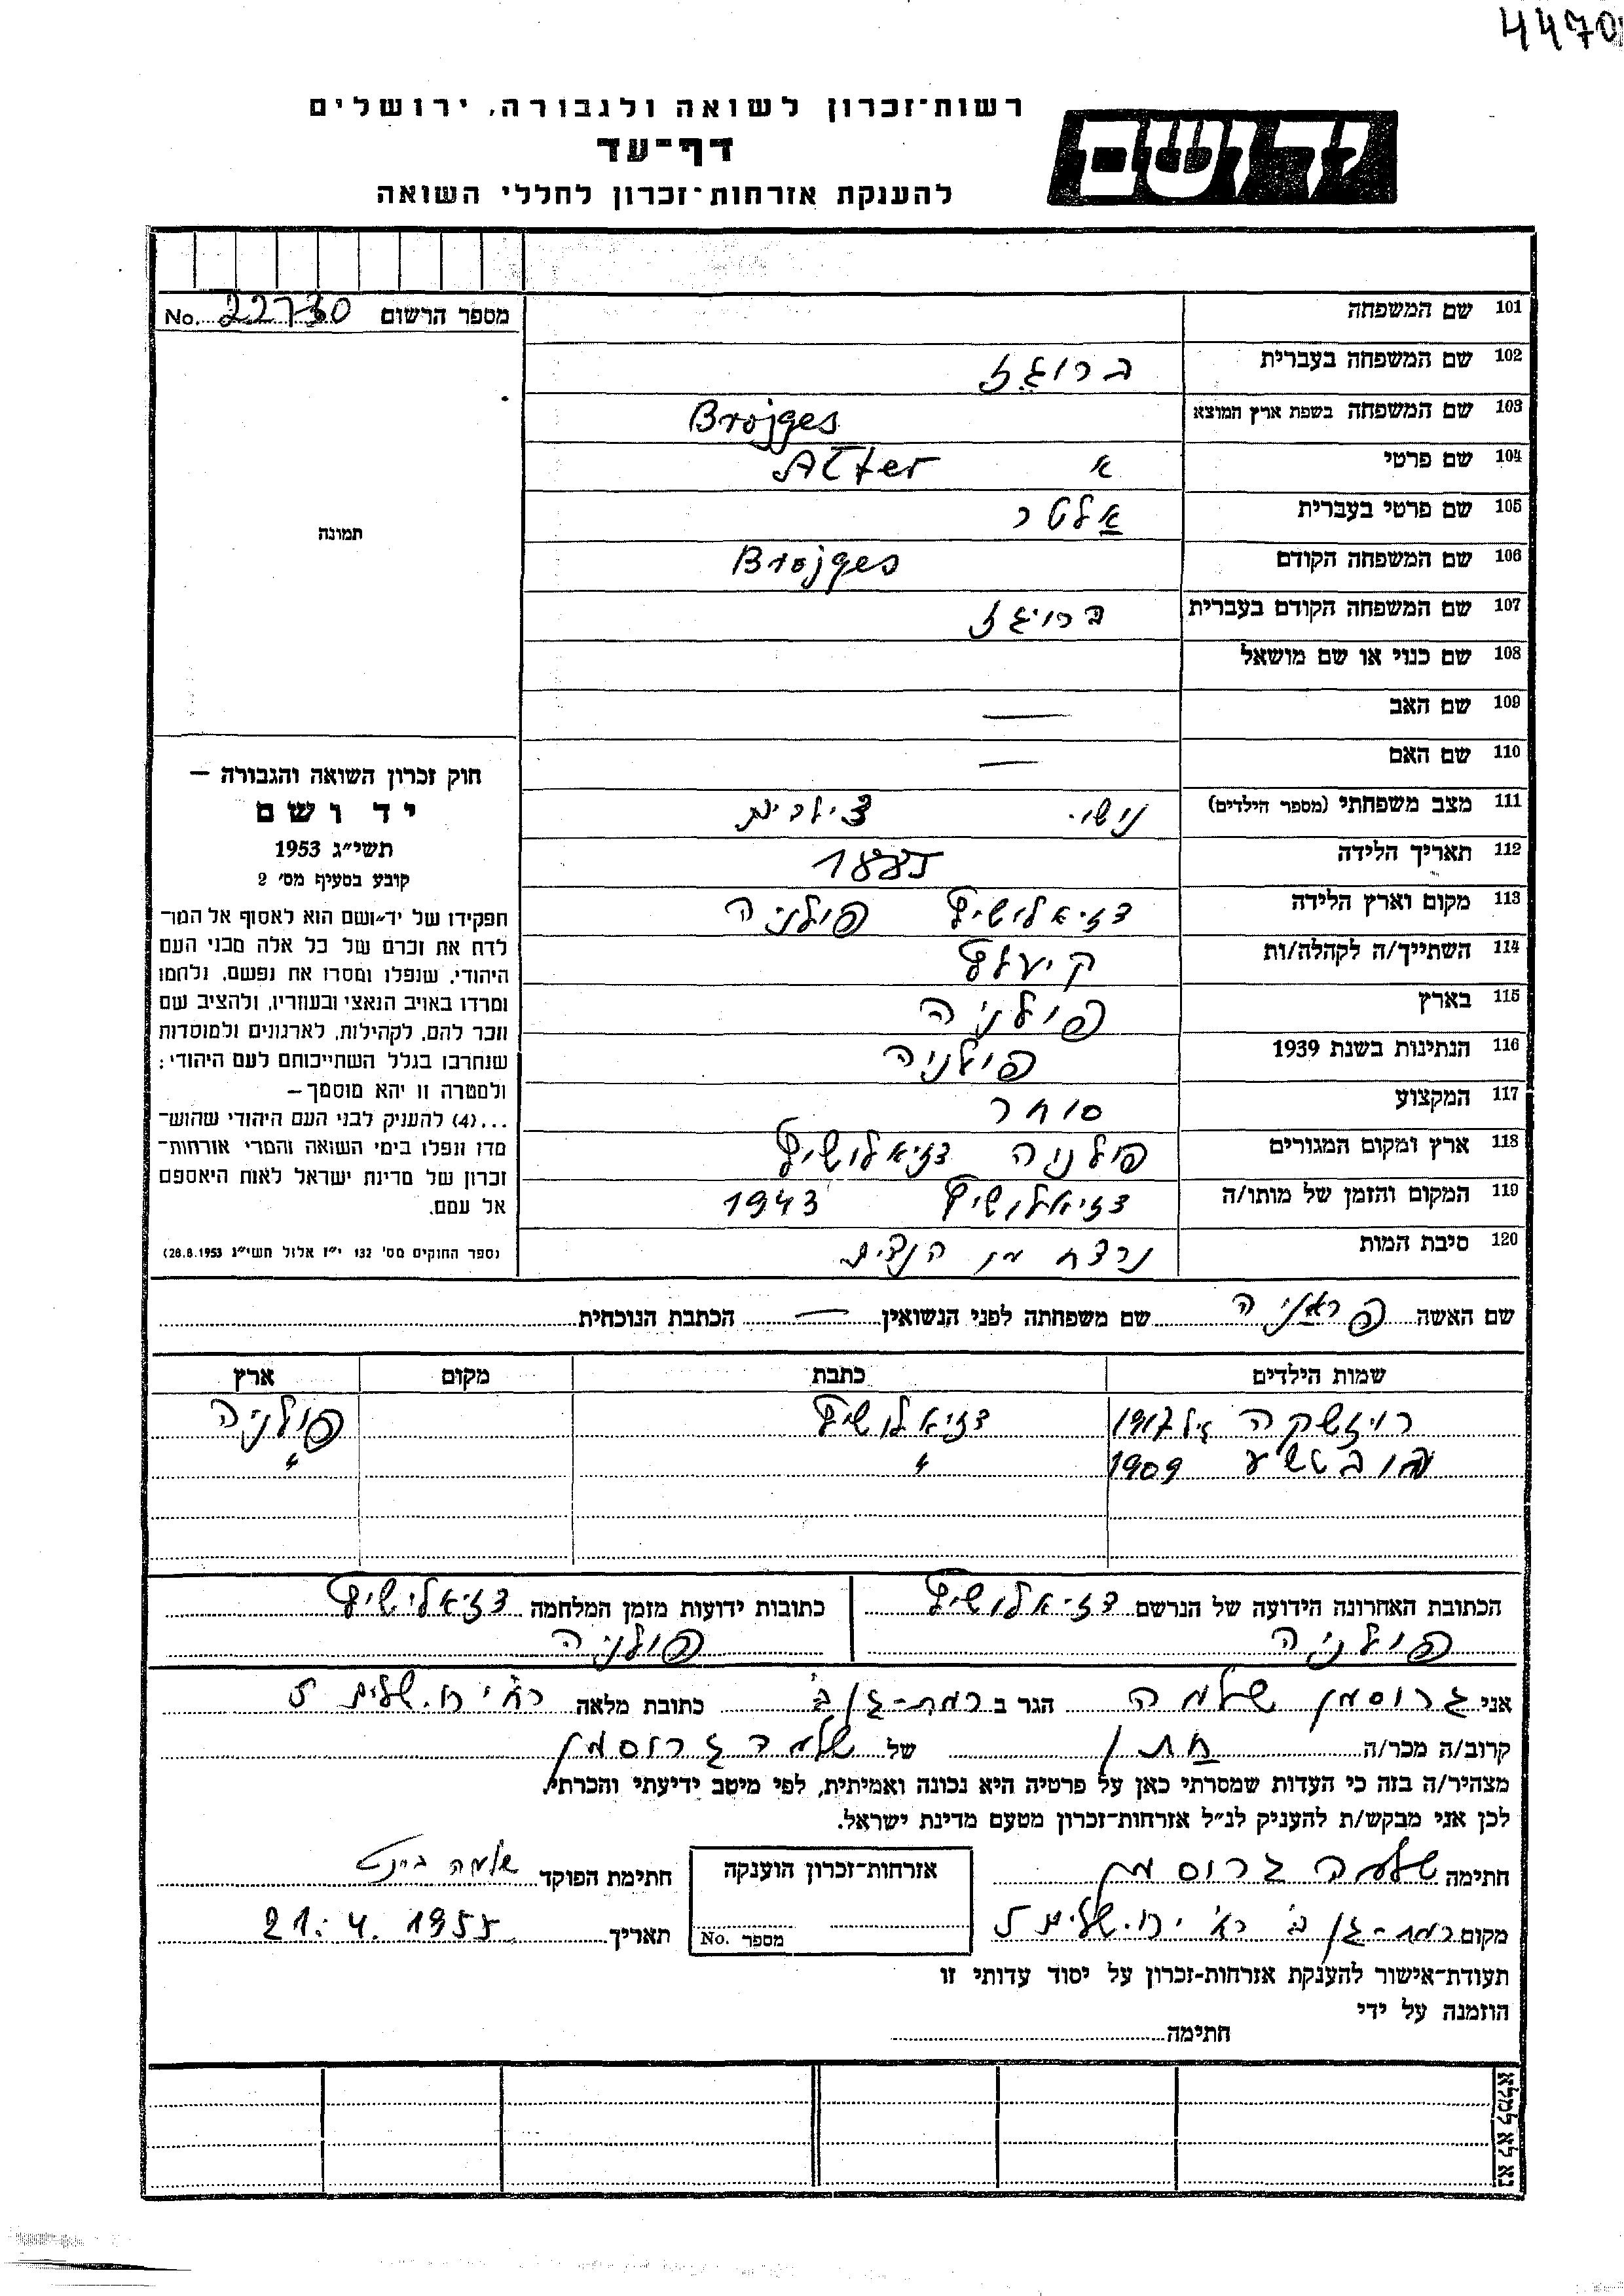 4470
רשות־זכרון לשואה ולגבורה, ירושלים
דף־עד
להענקת אזרחות־זכרון לחללי השואה
יד ושם
מספר הרשום No. 22730
תמונה
101 שם המשפחה
102 שם המשפחה בעברית ברויגז
103 שם המשפחה בשפת ארץ המוצא Brojges
104 שם פרטי א Alter
105 שם פרטי בעברית אלטר
106 שם המשפחה הקודם Brojges
107 שם המשפחה הקודם בעברית ברויגז
108 שם כנוי או שם מושאל
109 שם האב —
110 שם האם —
111 מצב משפחתי (מספר הילדים) נשוי 2 ילדים
112 תאריך הלידה 1885
113 מקום וארץ הלידה דזיאלושיץ פולניה
114 השתייך/ה לקהלה/ות קיעלץ
115 בארץ פולניה
116 הנתינות בשנת 1939 פולניה
117 המקצוע סוחר
118 ארץ ומקום המגורים פולניה דזיאלושיץ
119 המקום והזמן של מותו/ה דזיאלושיץ 1943
120 סיבת המות נרצח מן הנצים
חוק זכרון השואה והגבורה —
יד ושם
תשי״ג 1953
קובע בסעיף מס׳ 2
תפקידו של יד־ושם הוא לאסוף אל המו־
לדת את זכרם של כל אלה מבני העם
היהודי, שנפלו ומסרו את נפשם, נלחמו
ומרדו באויב הנאצי ובעוזריו, ולהציב שם
וזכר להם, לקהילות, לארגונים ולמוסדות
שנחרבו בגלל השתייכותם לעם היהודי:
ולמטרה זו יהא מוסמך—
...(4) להעניק לבני העם היהודי שהוש־
מדו ונפלו בימי השואה והמרי אזרחות־
זכרון של מדינת ישראל לאות היאספם
אל עמם.
(ספר החוקים מס׳ 132 י״ז אלול תשי״ג 28.8.1953)
שם האשה פראניה שם משפחתה לפני הנשואין — הכתבת הנוכחית
שמות הילדים כתבת מקום ארץ
רויזשקה גיל 1917 דזיאלושיץ פולניה
1909 " "
הכתובת האחרונה הידועה של הנרשם דזיאלושיץ
פולניה
כתובות ידועות מזמן המלחמה דזיאלושיץ
פולניה
אני גרוסמן שלמה הגר ב רמת-גן ב׳ כתובת מלאה רח׳ ירושלים 5
קרוב/ה מכר/ה חתן של שלמה גרוסמן
מצהיר/ה בזה כי העדות שמסרתי כאן על פרטיה היא נכונה ואמיתית, לפי מיטב ידיעתי והכרתי.
לכן אני מבקש/ת להעניק לנ״ל אזרחות־זכרון מטעם מדינת ישראל.
חתימה שלמה גרוסמן
אזרחות־זכרון הוענקה
חתימת הפוקד שלמה
מקום רמת-גן ב׳ רח׳ ירושלים 5
מספר No.
תאריך 21.4.1955
תעודת־אישור להענקת אזרחות־זכרון על יסוד עדותי זו
הוזמנה על ידי
חתימה
נא לא למלא